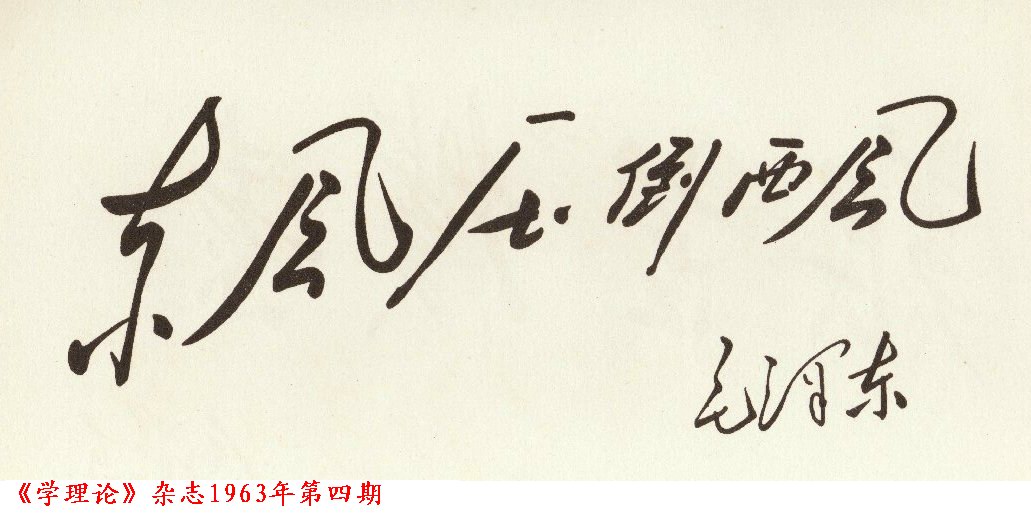 东风压倒西风
毛泽东
《学理论》杂志1963年第四期